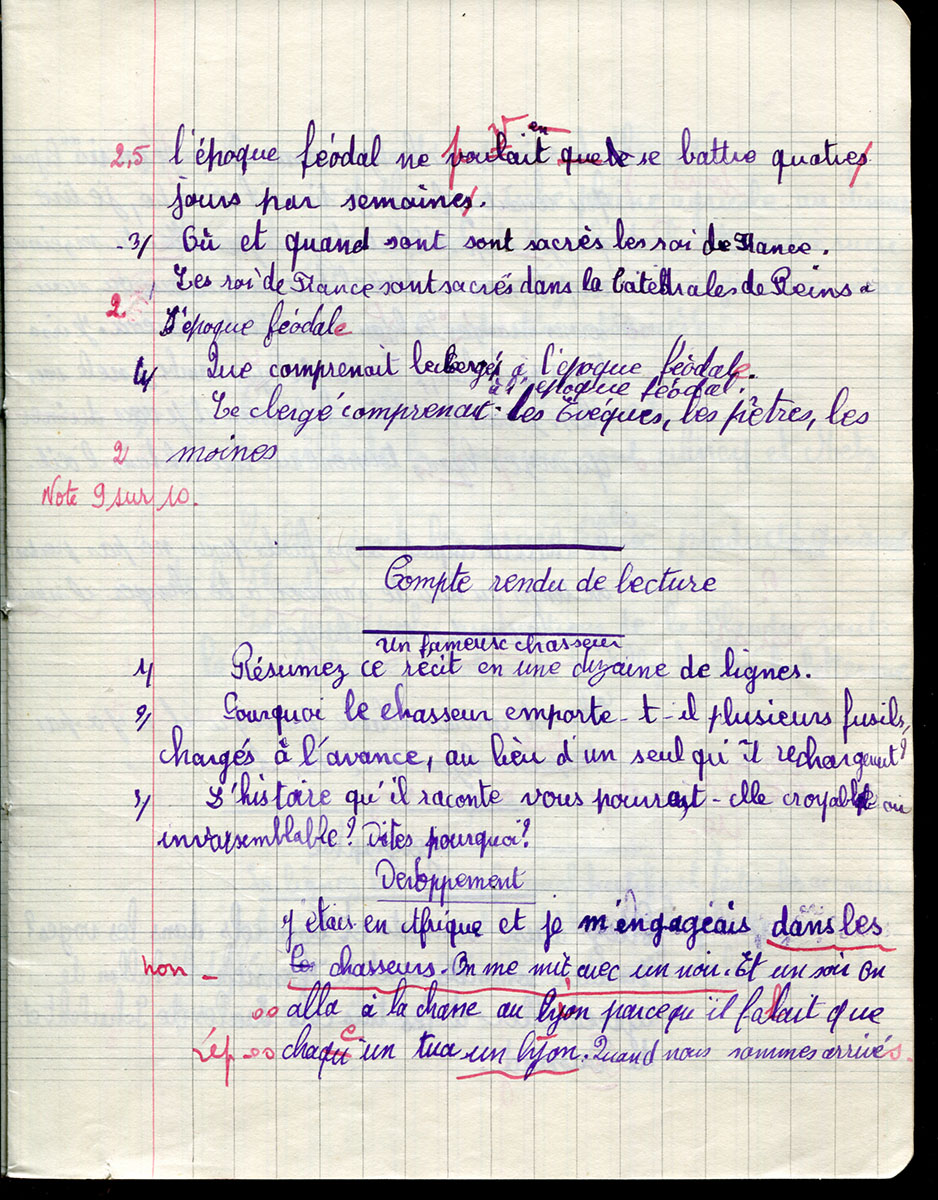 en
2,5 l'époque féodal ne voulait que se battre quatres
jours par semaines.
3/ Où et quand sont sont sacrés les roi de France.
Les roi de France sont sacrés dans la Catéthrales de Reins a
2 l'époque féodale
4/ Que comprenait le clergés à l'époque féodale.
à l'époque féodal.
Le clergé comprenait les Évéques, les prêtres, les
2 moines
Note 9 sur 10.
Compte rendu de lecture
Un fameux chasseur
1/ Résumez ce récit en une dizaine de lignes.
2/ Pourquoi le chasseur emporte-t-il plusieurs fusils,
chargés à l'avance, au lieu d'un seul qu'il rechargerait?
3/ L'histoire qu'il raconte vous - elle croyable ou
invraisemblable? Dites pourquoi?
Deroppement
J'étais en Afrique et je m'engageais dans les
non - les chasseurs. On me mit avec un noir. Et un soir on
alla à la chasse au lyon parcequ'il fallait que
rép chaqu'un tua un lyon. Quand nous sommes arrivés.